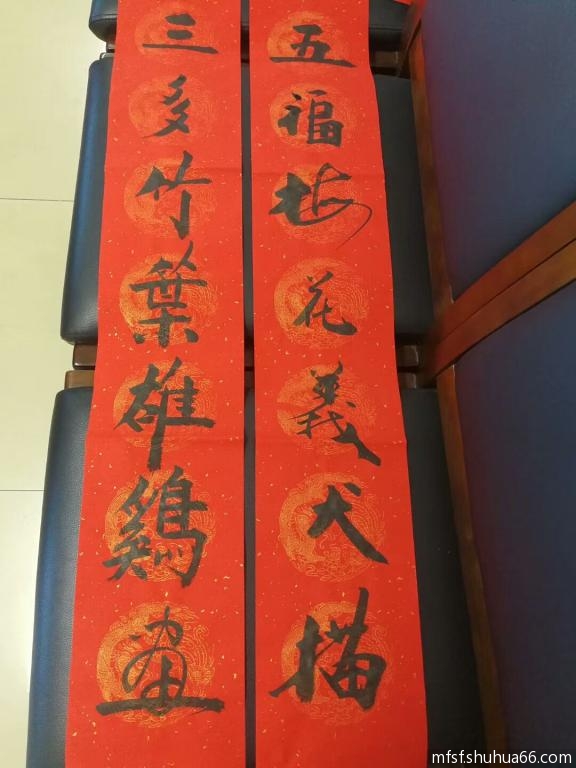 五福梅花義犬描
三多竹葉雄鷄畫
mfsf.shuhua66.com